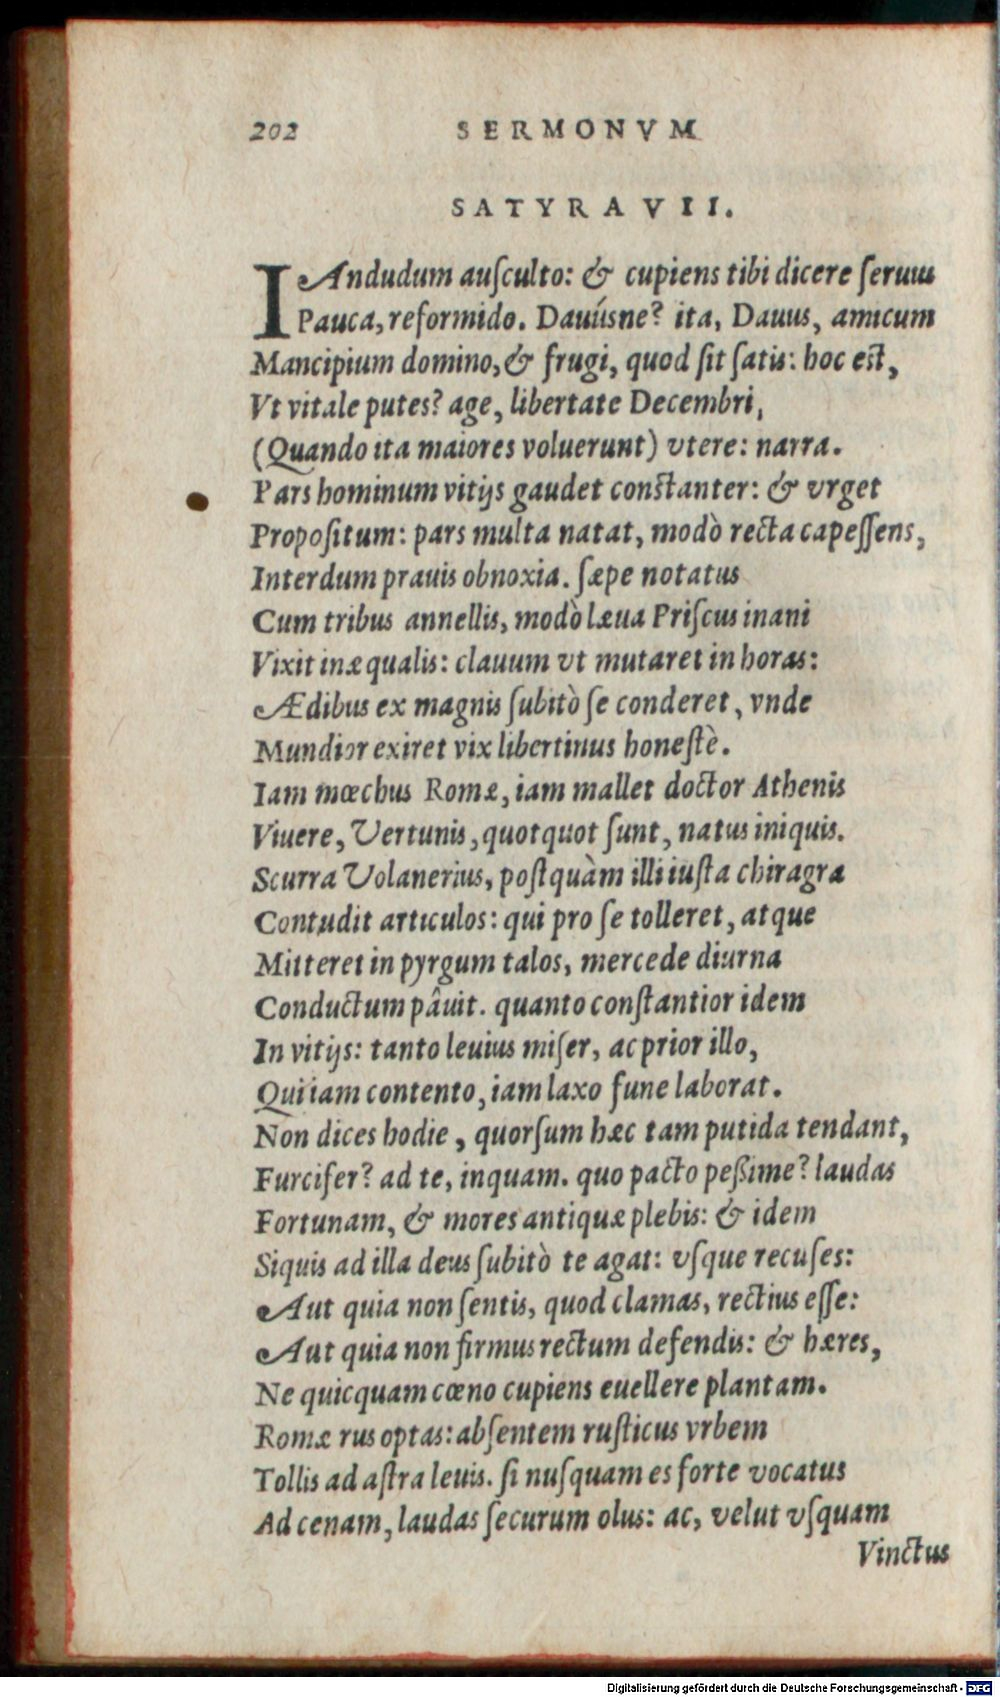 202 SERMONVM
SATYRA VII.
IAndudum auſculto: & cupiens tibi dicere ſeruus
Pauca, reformido. Dauúsne? ita, Dauus, amicum
Mancipium domino, & frugi, quod ſit ſatis: hoc eſt,
Vt vitale putes? age, libertate Decembri,
(Quando ita maiores voluerunt) vtere: narra.
Pars hominum vitijs gaudet conſtanter: & vrget
Propoſitum: pars multa natat, modò recta capeſſens,
Interdum prauis obnoxia. ſæpe notatus
Cum tribus annellis, modò læua Priſcus inani
Vixit inæqualis: clauum vt mutaret in horas:
Ædibus ex magnis ſubitò ſe conderet, vnde
Mundior exiret vix libertinus honeſtè.
Iam mœchus Romæ, iam mallet doctor Athenis
Viuere, Vertunis, quotquot ſunt, natus iniquis.
Scurra Volanerius, poſtquàm illi iuſta chiragra
Contudit articulos: qui pro ſe tolleret, atque
Mitteret in pyrgum talos, mercede diurna
Conductum pâuit. quanto conſtantior idem
In vitijs: tanto leuius miſer, ac prior illo,
Qui iam contento, iam laxo fune laborat.
Non dices hodie, quorſum hæc tam putida tendant,
Furcifer? ad te, inquam. quo pacto peßime? laudas
Fortunam, & mores antiquæ plebis: & idem
Siquis ad illa deus ſubitò te agat: vſque recuſes:
Aut quia non ſentis, quod clamas, rectius eſſe:
Aut quia non firmus rectum defendis: & hæres,
Ne quicquam cœno cupiens euellere plantam.
Romæ rus optas: abſentem ruſticus vrbem
Tollis ad aſtra leuis. ſi nuſquam es forte vocatus
Ad cenam, laudas ſecurum olus: ac, velut vſquam
Vinctus
Digitalisierung gefördert durch die Deutsche Forschungsgemeinschaft - DFG